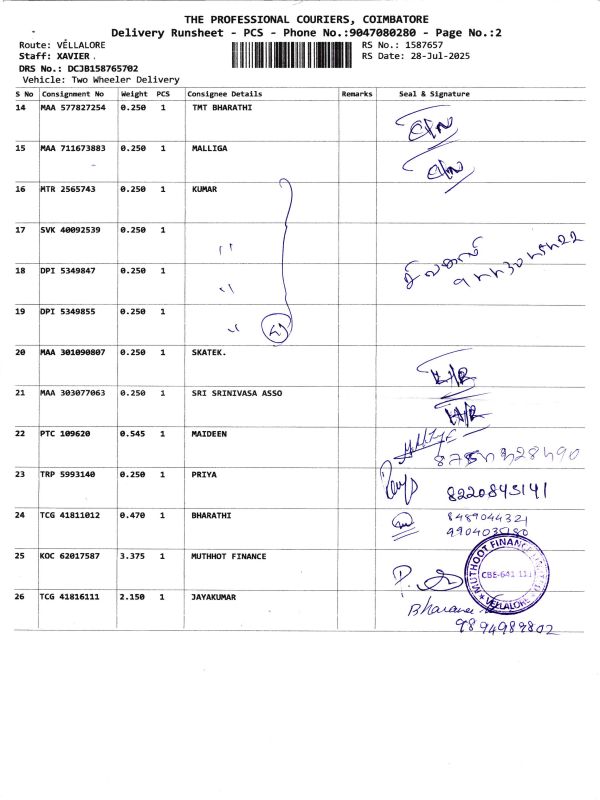 THE PROFESSIONAL COURIERS, COIMBATORE
Delivery Runsheet - PCS - Phone No.:9047080280 - Page No.:2
Route: VELLALORE RS No.: 1587657
Staff: XAVIER . RS Date: 28-Jul-2025
DRS No.: DCJB158765702
Vehicle: Two Wheeler Delivery
S No Consignment No Weight PCS Consignee Details Remarks Seal & Signature
14 MAA 577827254 0.250 1 TMT BHARATHI
15 MAA 711673883 0.250 1 MALLIGA
16 MTR 2565743 0.250 1 KUMAR
17 SVK 40092539 0.250 1 ''
18 DPI 5349847 0.250 1 ''
19 DPI 5349855 0.250 1 ''
20 MAA 301090807 0.250 1 SKATEK.
21 MAA 303077063 0.250 1 SRI SRINIVASA ASSO
22 PTC 109620 0.545 1 MAIDEEN
23 TRP 5993140 0.250 1 PRIYA
8220845141
24 TCG 41811012 0.470 1 BHARATHI
8489044321
25 KOC 62017587 3.375 1 MUTHHOT FINANCE
MUTHOOT FINANCE
CBE-641 111
VELLALORE
26 TCG 41816111 2.150 1 JAYAKUMAR
9894989802